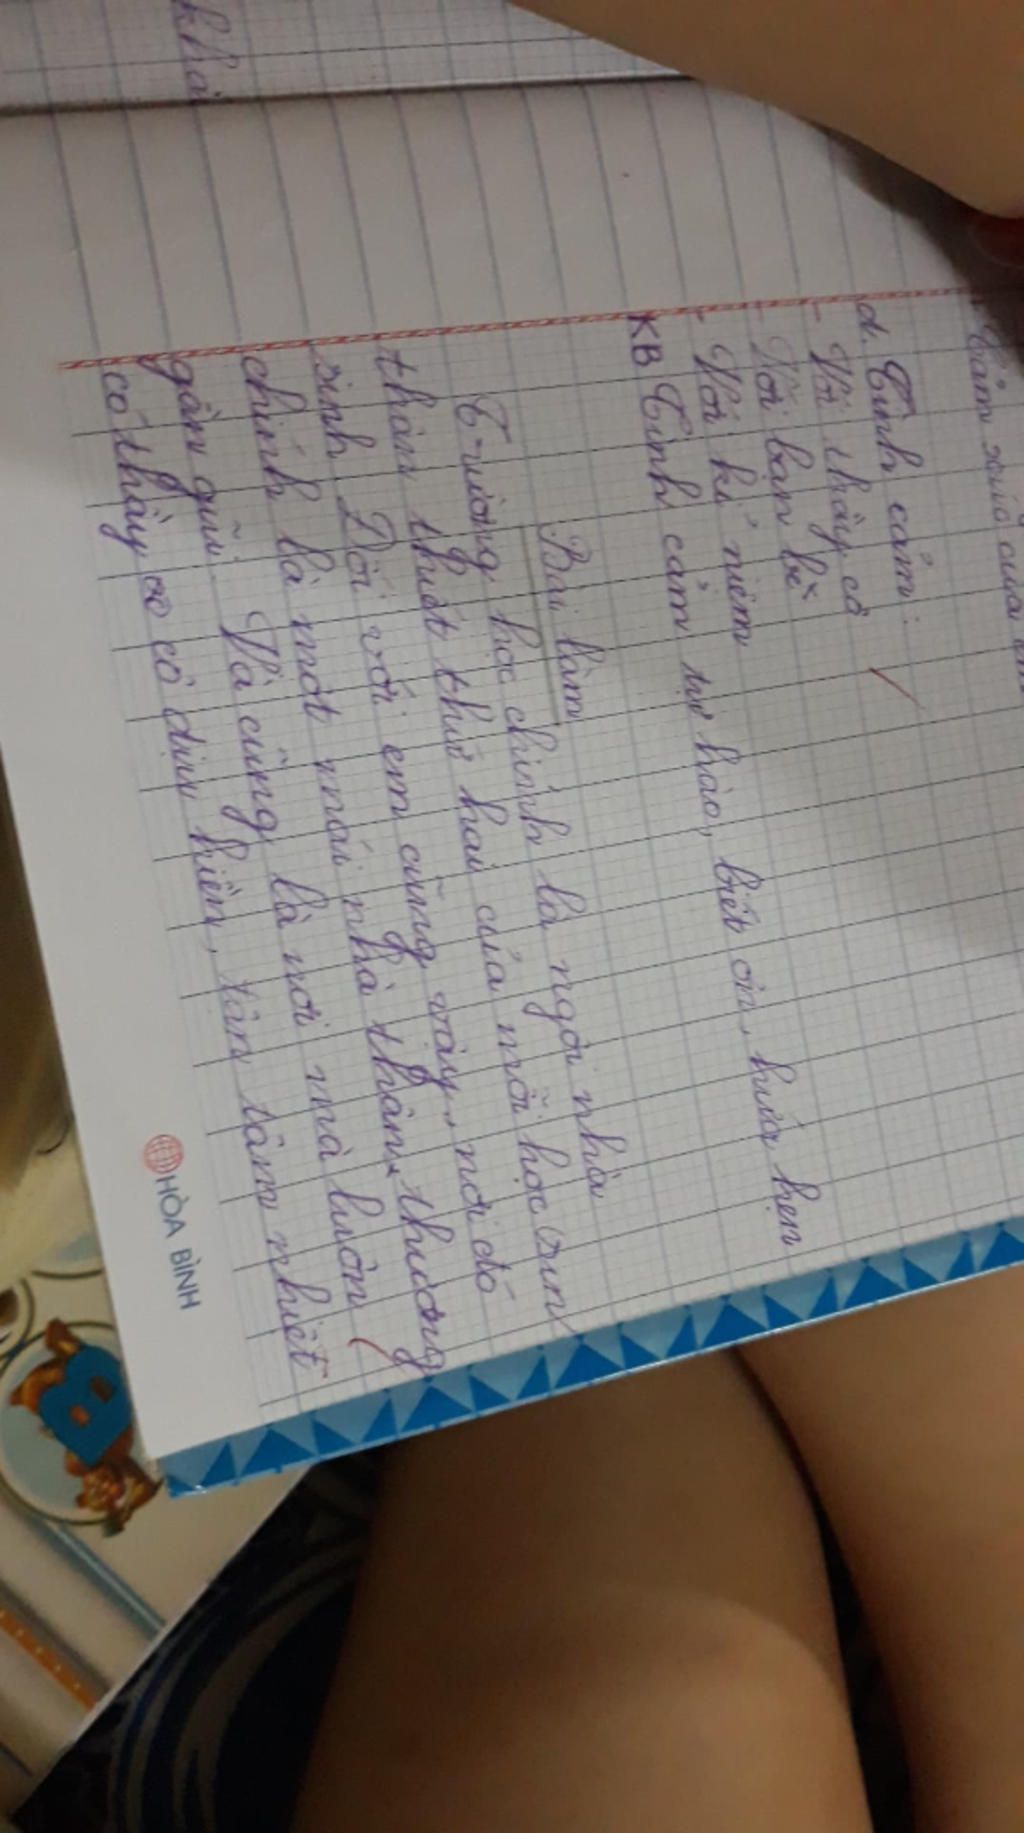 Cảm xúc của em
d. Tình cảm:
- Với thầy cô
- Với bạn bè
- Với kỉ niệm
KB Tình cảm tự hào, biết ơn, hứa hẹn
Bài làm
Trường học chính là ngôi nhà
thân thiết thứ hai của mỗi học sin
sinh. Đối với em cũng vậy, nơi đó
chính là một mái nhà thân thương
gần gũi. Và cũng là nơi mà luôn
có thầy cô cô dịu hiền, tận tâm nhiệt
khai
HÒA BÌNH